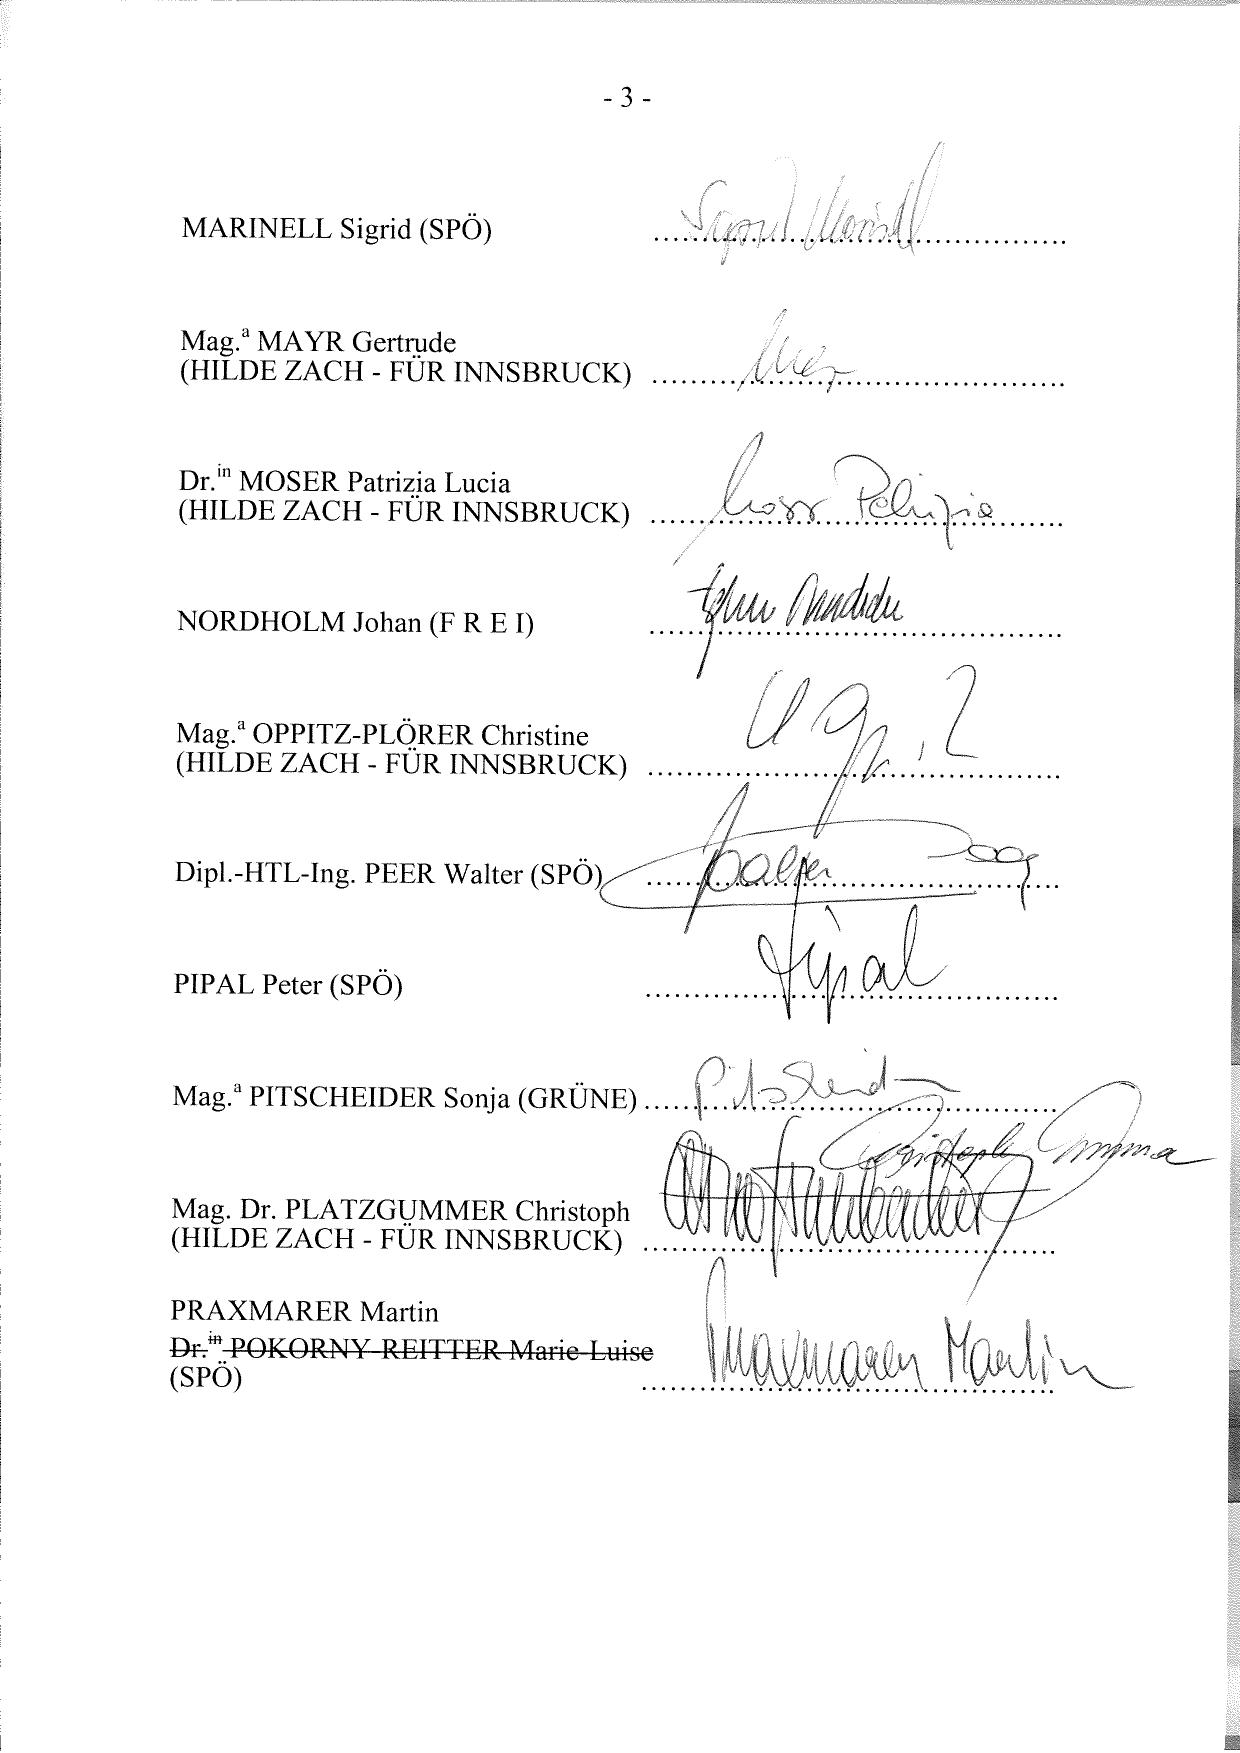 - 3 -
MARINELL Sigrid (SPÖ) Sigrid Marinell
Mag.ª MAYR Gertrude
(HILDE ZACH - FÜR INNSBRUCK)
Dr.in MOSER Patrizia Lucia
(HILDE ZACH - FÜR INNSBRUCK) Moser Patrizia
NORDHOLM Johan (F R E I)
Mag.ª OPPITZ-PLÖRER Christine
(HILDE ZACH - FÜR INNSBRUCK)
Dipl.-HTL-Ing. PEER Walter (SPÖ) Walter Peer
PIPAL Peter (SPÖ) Pipal
Mag.ª PITSCHEIDER Sonja (GRÜNE) Pitscheider
Mag. Dr. PLATZGUMMER Christoph
(HILDE ZACH - FÜR INNSBRUCK) Christoph
PRAXMARER Martin
Dr.in POKORNY-REITTER Marie-Luise
(SPÖ) Praxmarer Martin